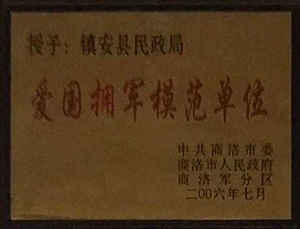 授予：镇安县民政局
爱国拥军模范单位
中共商洛市委
商洛市人民政府
商洛军分区
二00六年七月